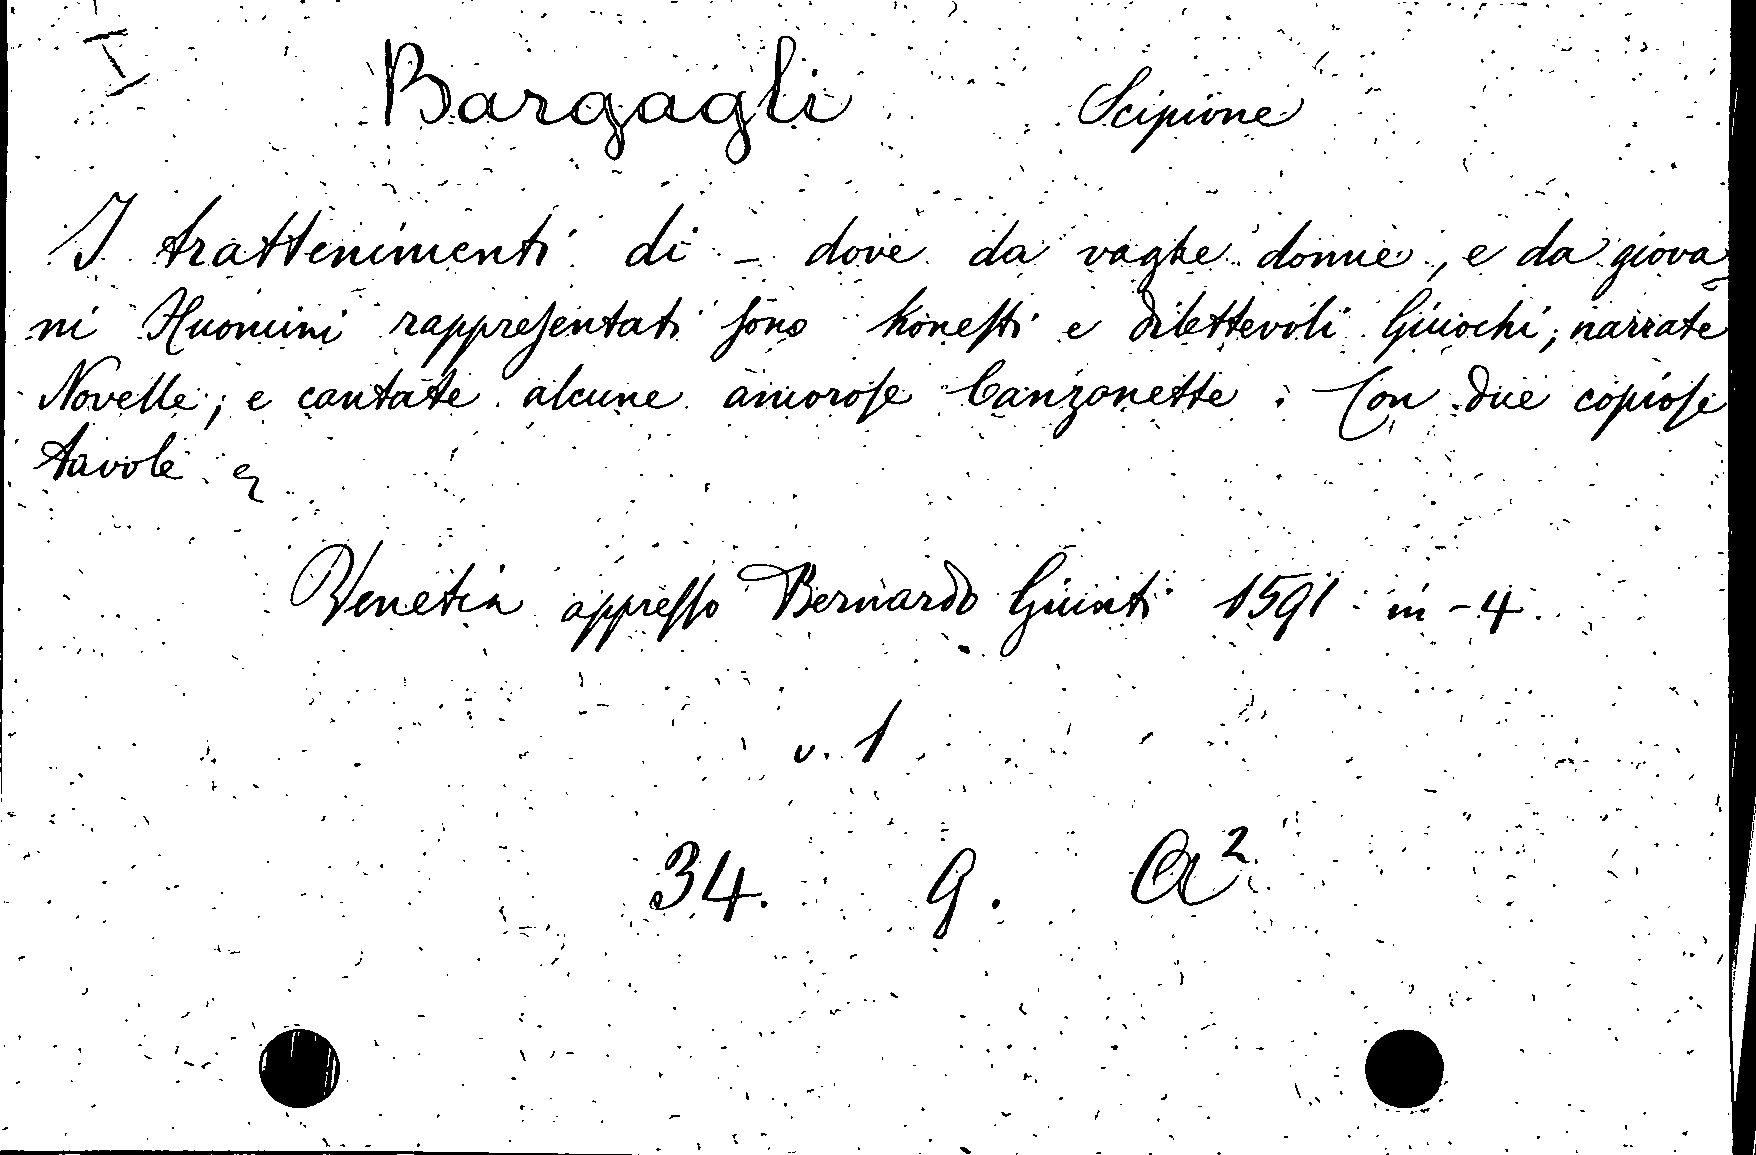 I
Bargagli Scipione
I trattenimenti di - dove da vaghe donne, e da giova-
ni Huomini rappreſentati ſono honeſti e dilettevoli Giuochi; narrate
Novelle; e cantate alcune amoroſe Canzonette. Con due copioſe
tavole
Venetia appreſſo Bernardo Giunti 1591 in-4.
v. 1
34. G. A²